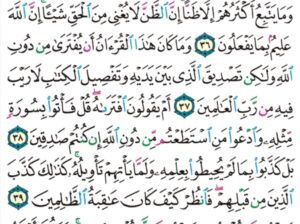 وَمَا يَتَّبِعُ أَكْثَرُهُمْ إِلَّا ظَنًّا إِنَّ الظَّنَّ لَا يُغْنِي مِنَ الْحَقِّ شَيْئًا إِنَّ اللَّهَ
عَلِيمٌ بِمَا يَفْعَلُونَ ٣٦ وَمَا كَانَ هَذَا الْقُرْءَانُ أَن يُفْتَرَى مِن دُونِ
اللَّهِ وَلَكِن تَصْدِيقَ الَّذِي بَيْنَ يَدَيْهِ وَتَفْصِيلَ الْكِتَابِ لَا رَيْبَ
فِيهِ مِن رَّبِّ الْعَالَمِينَ ٣٧ أَمْ يَقُولُونَ افْتَرَاهُ قُلْ فَأْتُوا بِسُورَةٍ
مِّثْلِهِ وَادْعُوا مَنِ اسْتَطَعْتُم مِّن دُونِ اللَّهِ إِن كُنتُمْ صَادِقِينَ ٣٨
بَلْ كَذَّبُوا بِمَا لَمْ يُحِيطُوا بِعِلْمِهِ وَلَمَّا يَأْتِهِمْ تَأْوِيلُهُ كَذَلِكَ كَذَّبَ
الَّذِينَ مِن قَبْلِهِمْ فَانظُرْ كَيْفَ كَانَ عَاقِبَةُ الظَّالِمِينَ ٣٩